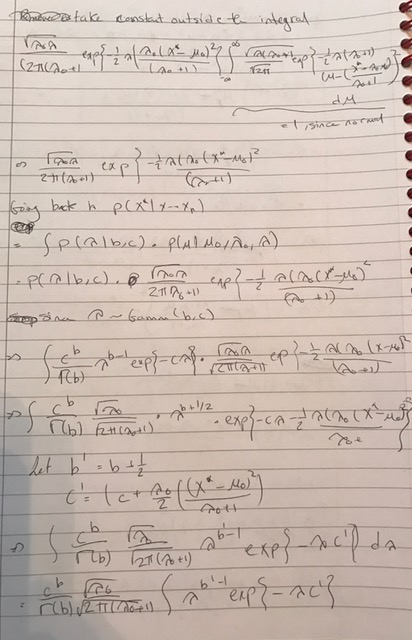 take constant outside the integral
√λ₀λ / (2π(λ₀+1) exp{ ½ λ (λ₀(x*-μ₀)² / (λ₀+1) } ∫_{-∞}^{∞} √λ(λ₀+1) / √2π exp{ -½ λ(λ₀+1) (μ - (x*-λ₀μ₀ / λ₀+1)²
dM
= 1, since normal
⇒ √λ₀λ / 2π(λ₀+1) exp} -½ λ(λ₀(x*-μ₀)² / (λ₀+1)
Going back to p(x*|x...xₙ)
= ∫ p(λ|b,c) · p(μ|μ₀,λ₀,λ)
= p(λ|b,c) · √λ₀λ / 2π(λ₀+1) exp} -½ λ(λ₀(x*-μ₀)² / (λ₀+1)
since λ ~ Gamma(b,c)
⇒ ∫ c^b / Γ(b) λ^{b-1} exp{-cλ} · √λ₀λ / √2π(λ+1) exp} -½ λ(λ₀(x-μ₀)² / (λ₀+1)
⇒ ∫ c^b / Γ(b) √λ₀ / √2π(λ₀+1) · λ^{b+1/2} · exp} -cλ -½ λ(λ₀(x*-μ₀)² / λ₀+
Let b' = b + ½
c' = (c + λ₀/2 ((x*-μ₀)² / λ₀+1)
⇒ ∫ c^b / Γ(b) √λ / √2π(λ₀+1) λ^{b'-1} exp{-λc'} dλ
= c^b / Γ(b) √λ₀ / √2π(λ₀+1) ∫ λ^{b'-1} exp{-λc'}